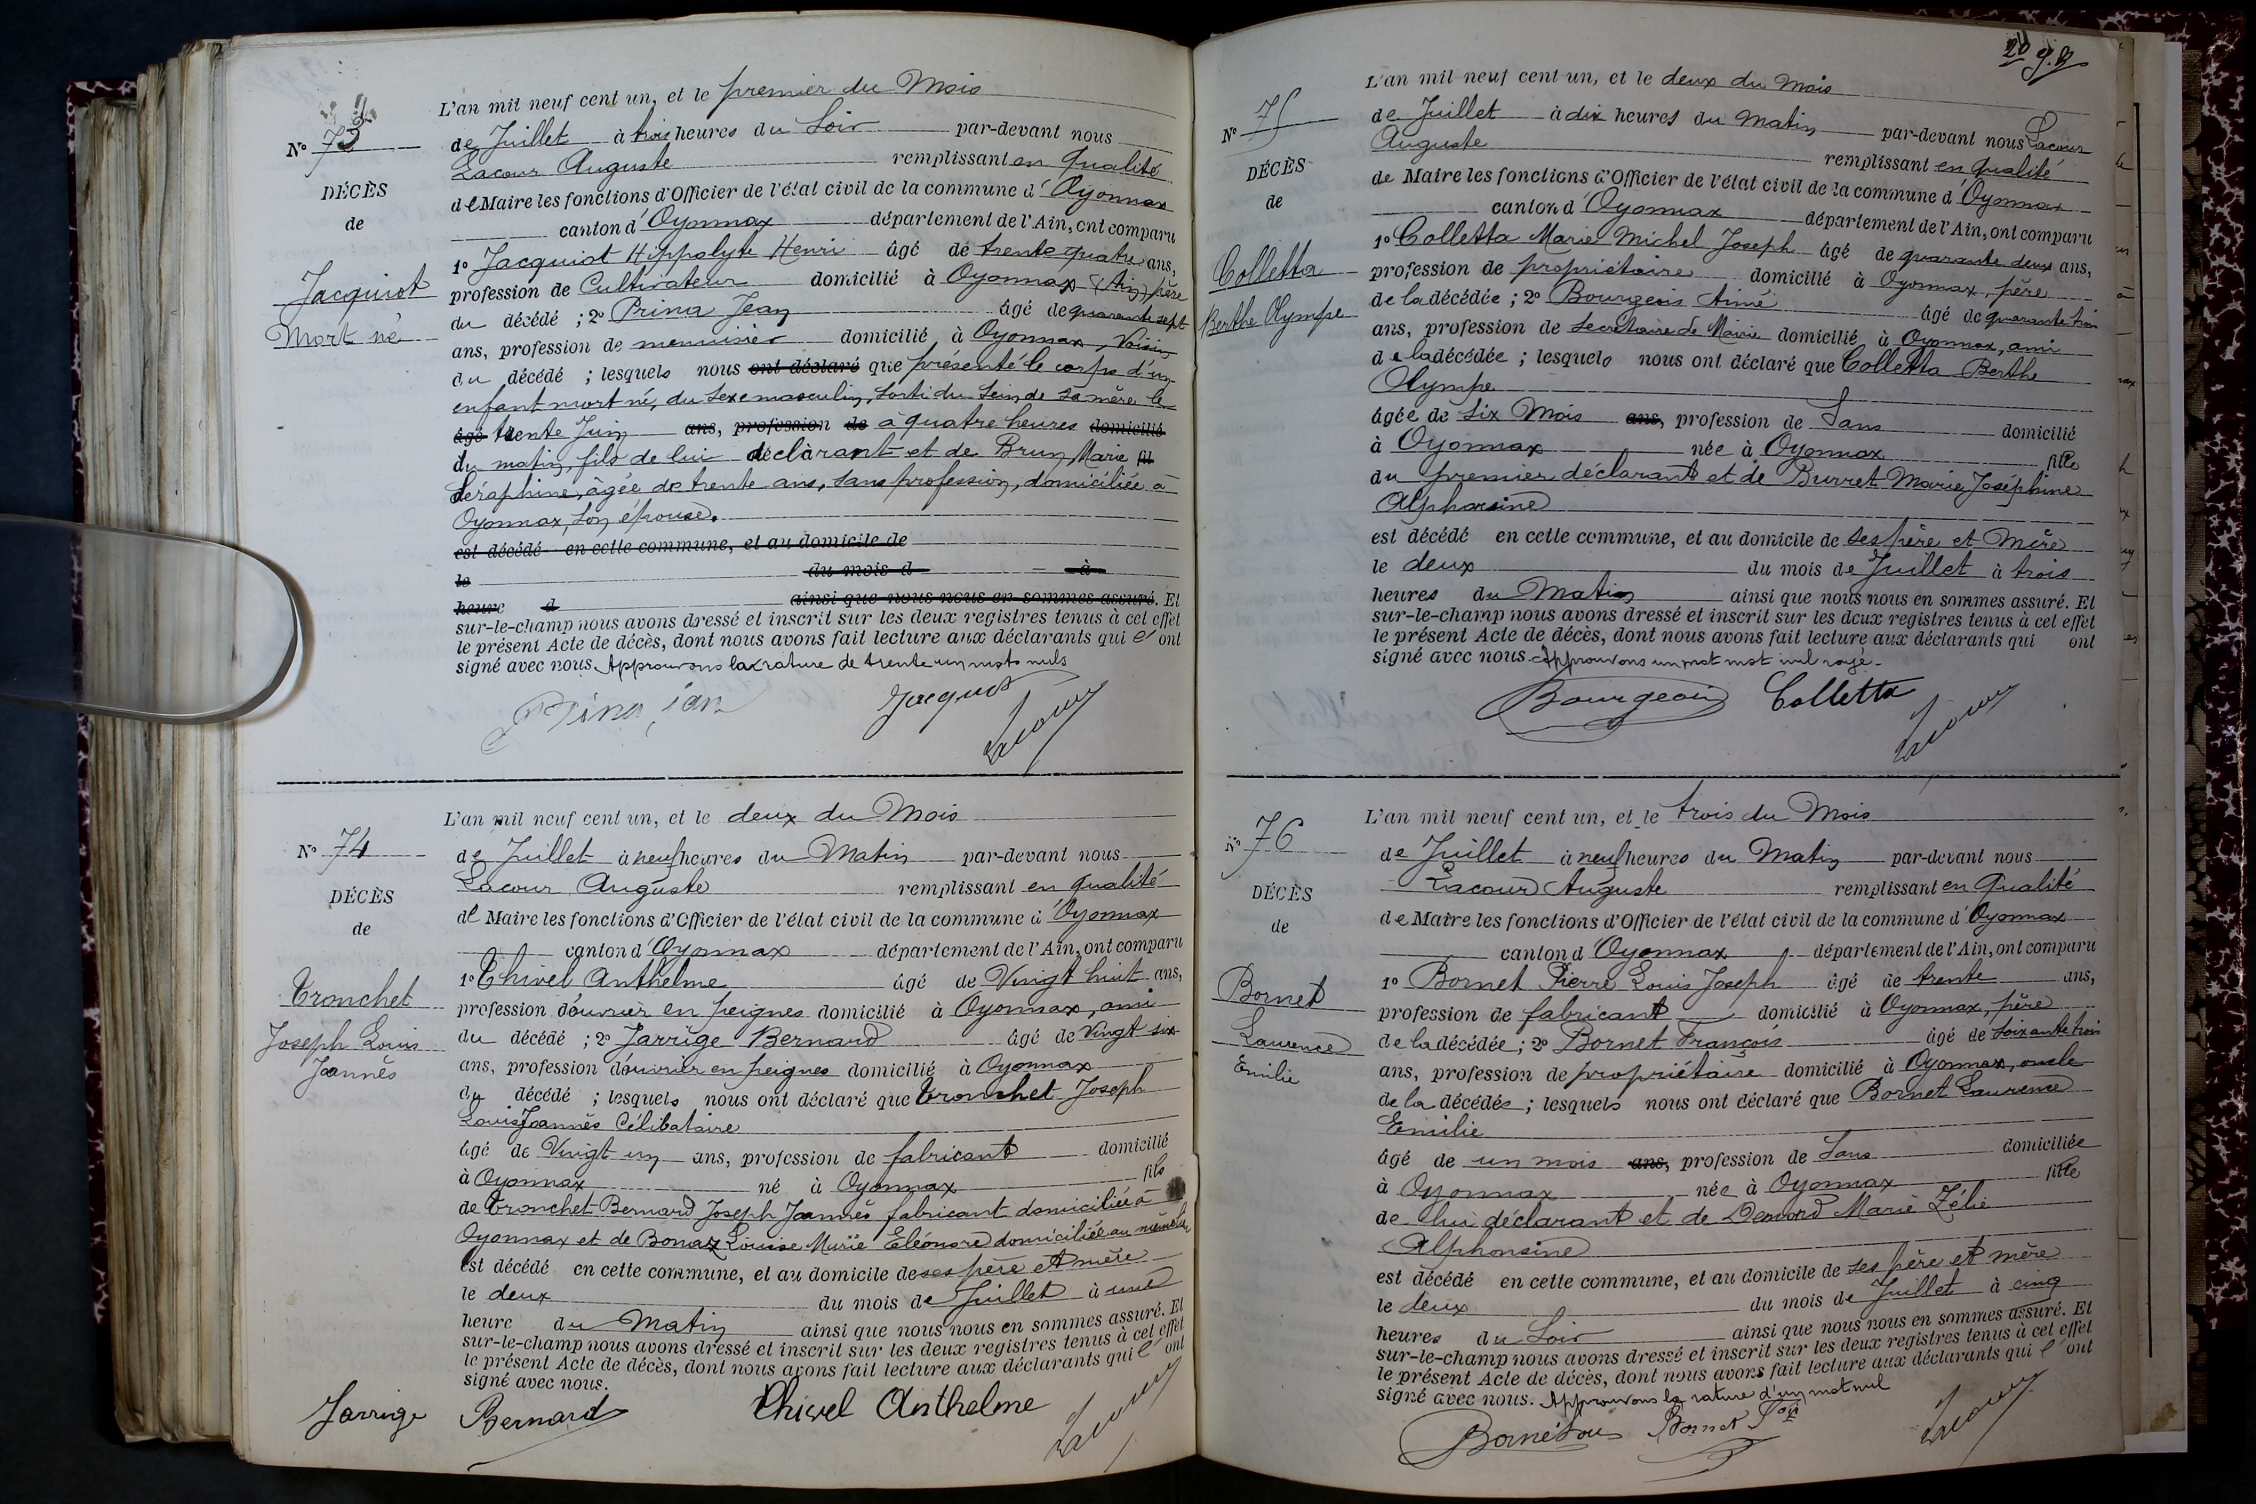 Nº 73
DÉCÈS
de
Jacquiot
Mort né
L'an mil neuf cent un, et le premier du Mois
de Juillet à trois heures du Soir par-devant nous
Lacour Auguste remplissant en qualité
de Maire les fonctions d'Officier de l'état civil de la commune d'Oyonnax
canton d'Oyonnax département de l'Ain, ont comparu
1º Jacquiot Hippolyte Henri âgé de trente quatre ans,
profession de Cultivateur domicilié à Oyonnax (Ain) père
du décédé ; 2º Prina Jean âgé de quarante sept
ans, profession de menuisier domicilié à Oyonnax, Voisin
du décédé ; lesquels nous ont déclaré que présenté le corps d'un
enfant mort né, du sexe masculin, sorti du sein de sa mère le
âgé trente Juin ans, profession de à quatre heures domicilié
du matin, fils de lui déclarant et de Brun Marie fil
Séraphine, âgée de trente ans, sans profession, domiciliée à
Oyonnax, son épouse.
est décédé en cette commune, et au domicile de
le du mois d à
heure d ainsi que nous nous en sommes assuré. Et
sur-le-champ nous avons dressé et inscrit sur les deux registres tenus à cet effet
le présent Acte de décès, dont nous avons fait lecture aux déclarants qui ont
signé avec nous. Approuvons la rature de trente un mots nuls
Prina jan Jacquiot Lacour
Nº 74
DÉCÈS
de
Tronchet
Joseph Louis
Joannès
L'an mil neuf cent un, et le deux du Mois
de Juillet à neuf heures du Matin par-devant nous
Lacour Auguste remplissant en qualité
de Maire les fonctions d'Officier de l'état civil de la commune d'Oyonnax
canton d'Oyonnax département de l'Ain, ont comparu
1º Chivel Anthelme âgé de Vingt huit ans,
profession d'ouvrier en peignes domicilié à Oyonnax, ami
du décédé ; 2º Jarrige Bernard âgé de Vingt six
ans, profession d'ouvrier en peignes domicilié à Oyonnax
du décédé ; lesquels nous ont déclaré que Tronchet Joseph
Louis Joannès Célibataire
âgé de Vingt un ans, profession de fabricant domicilié
à Oyonnax né à Oyonnax fils
de Tronchet Bernard Joseph Joannès fabricant domiciliée à
Oyonnax et de Bonaz Louise Marie Eléonore domiciliée au même lieu
est décédé en cette commune, et au domicile de ses père et mère
le deux du mois de Juillet à une
heure du Matin ainsi que nous nous en sommes assuré. Et
sur-le-champ nous avons dressé et inscrit sur les deux registres tenus à cet effet
le présent Acte de décès, dont nous avons fait lecture aux déclarants qui ont
signé avec nous.
Jarrige Bernard Chivel Anthelme Lacour
20
Nº 75
DÉCÈS
de
Colletta
Berthe Olympe
L'an mil neuf cent un, et le deux du Mois
de Juillet à dix heures du Matin par-devant nous Lacour
Auguste remplissant en qualité
de Maire les fonctions d'Officier de l'état civil de la commune d'Oyonnax
canton d'Oyonnax département de l'Ain, ont comparu
1º Colletta Marie Michel Joseph âgé de quarante deux ans,
profession de propriétaire domicilié à Oyonnax, père
de la décédée ; 2º Bourgeois Aimé âgé de quarante trois
ans, profession de Secrétaire de Mairie domicilié à Oyonnax, ami
de la décédée ; lesquels nous ont déclaré que Colletta Berthe
Olympe
âgée de Six Mois ans, profession de Sans domicilié
à Oyonnax née à Oyonnax fille
du premier déclarant et de Burret Marie Joséphine
Alphonsine
est décédé en cette commune, et au domicile de ses père et mère
le deux du mois de Juillet à trois
heures du Matin ainsi que nous nous en sommes assuré. Et
sur-le-champ nous avons dressé et inscrit sur les deux registres tenus à cet effet
le présent Acte de décès, dont nous avons fait lecture aux déclarants qui ont
signé avec nous. Approuvons un mot mot nul rayé.
Bourgeois Colletta Lacour
Nº 76
DÉCÈS
de
Bornet
Laurence
Emilie
L'an mil neuf cent un, et le trois du Mois
de Juillet à neuf heures du Matin par-devant nous
Lacour Auguste remplissant en Qualité
de Maire les fonctions d'Officier de l'état civil de la commune d'Oyonnax
canton d'Oyonnax département de l'Ain, ont comparu
1º Bornet Pierre Louis Joseph âgé de trente ans,
profession de fabricant domicilié à Oyonnax, père
de la décédée ; 2º Bornet François âgé de soixante trois
ans, profession de propriétaire domicilié à Oyonnax, oncle
de la décédée ; lesquels nous ont déclaré que Bornet Laurence
Emilie
âgé de un mois ans, profession de Sans domiciliée
à Oyonnax née à Oyonnax fille
de lui déclarant et de Demord Marie Zélie
Alphonsine
est décédé en cette commune, et au domicile de ses père et mère
le deux du mois de Juillet à cinq
heures du Soir ainsi que nous nous en sommes assuré. Et
sur-le-champ nous avons dressé et inscrit sur les deux registres tenus à cet effet
le présent Acte de décès, dont nous avons fait lecture aux déclarants qui ont
signé avec nous. Approuvons la rature d'un mot nul
Bornet Bornet Lacour